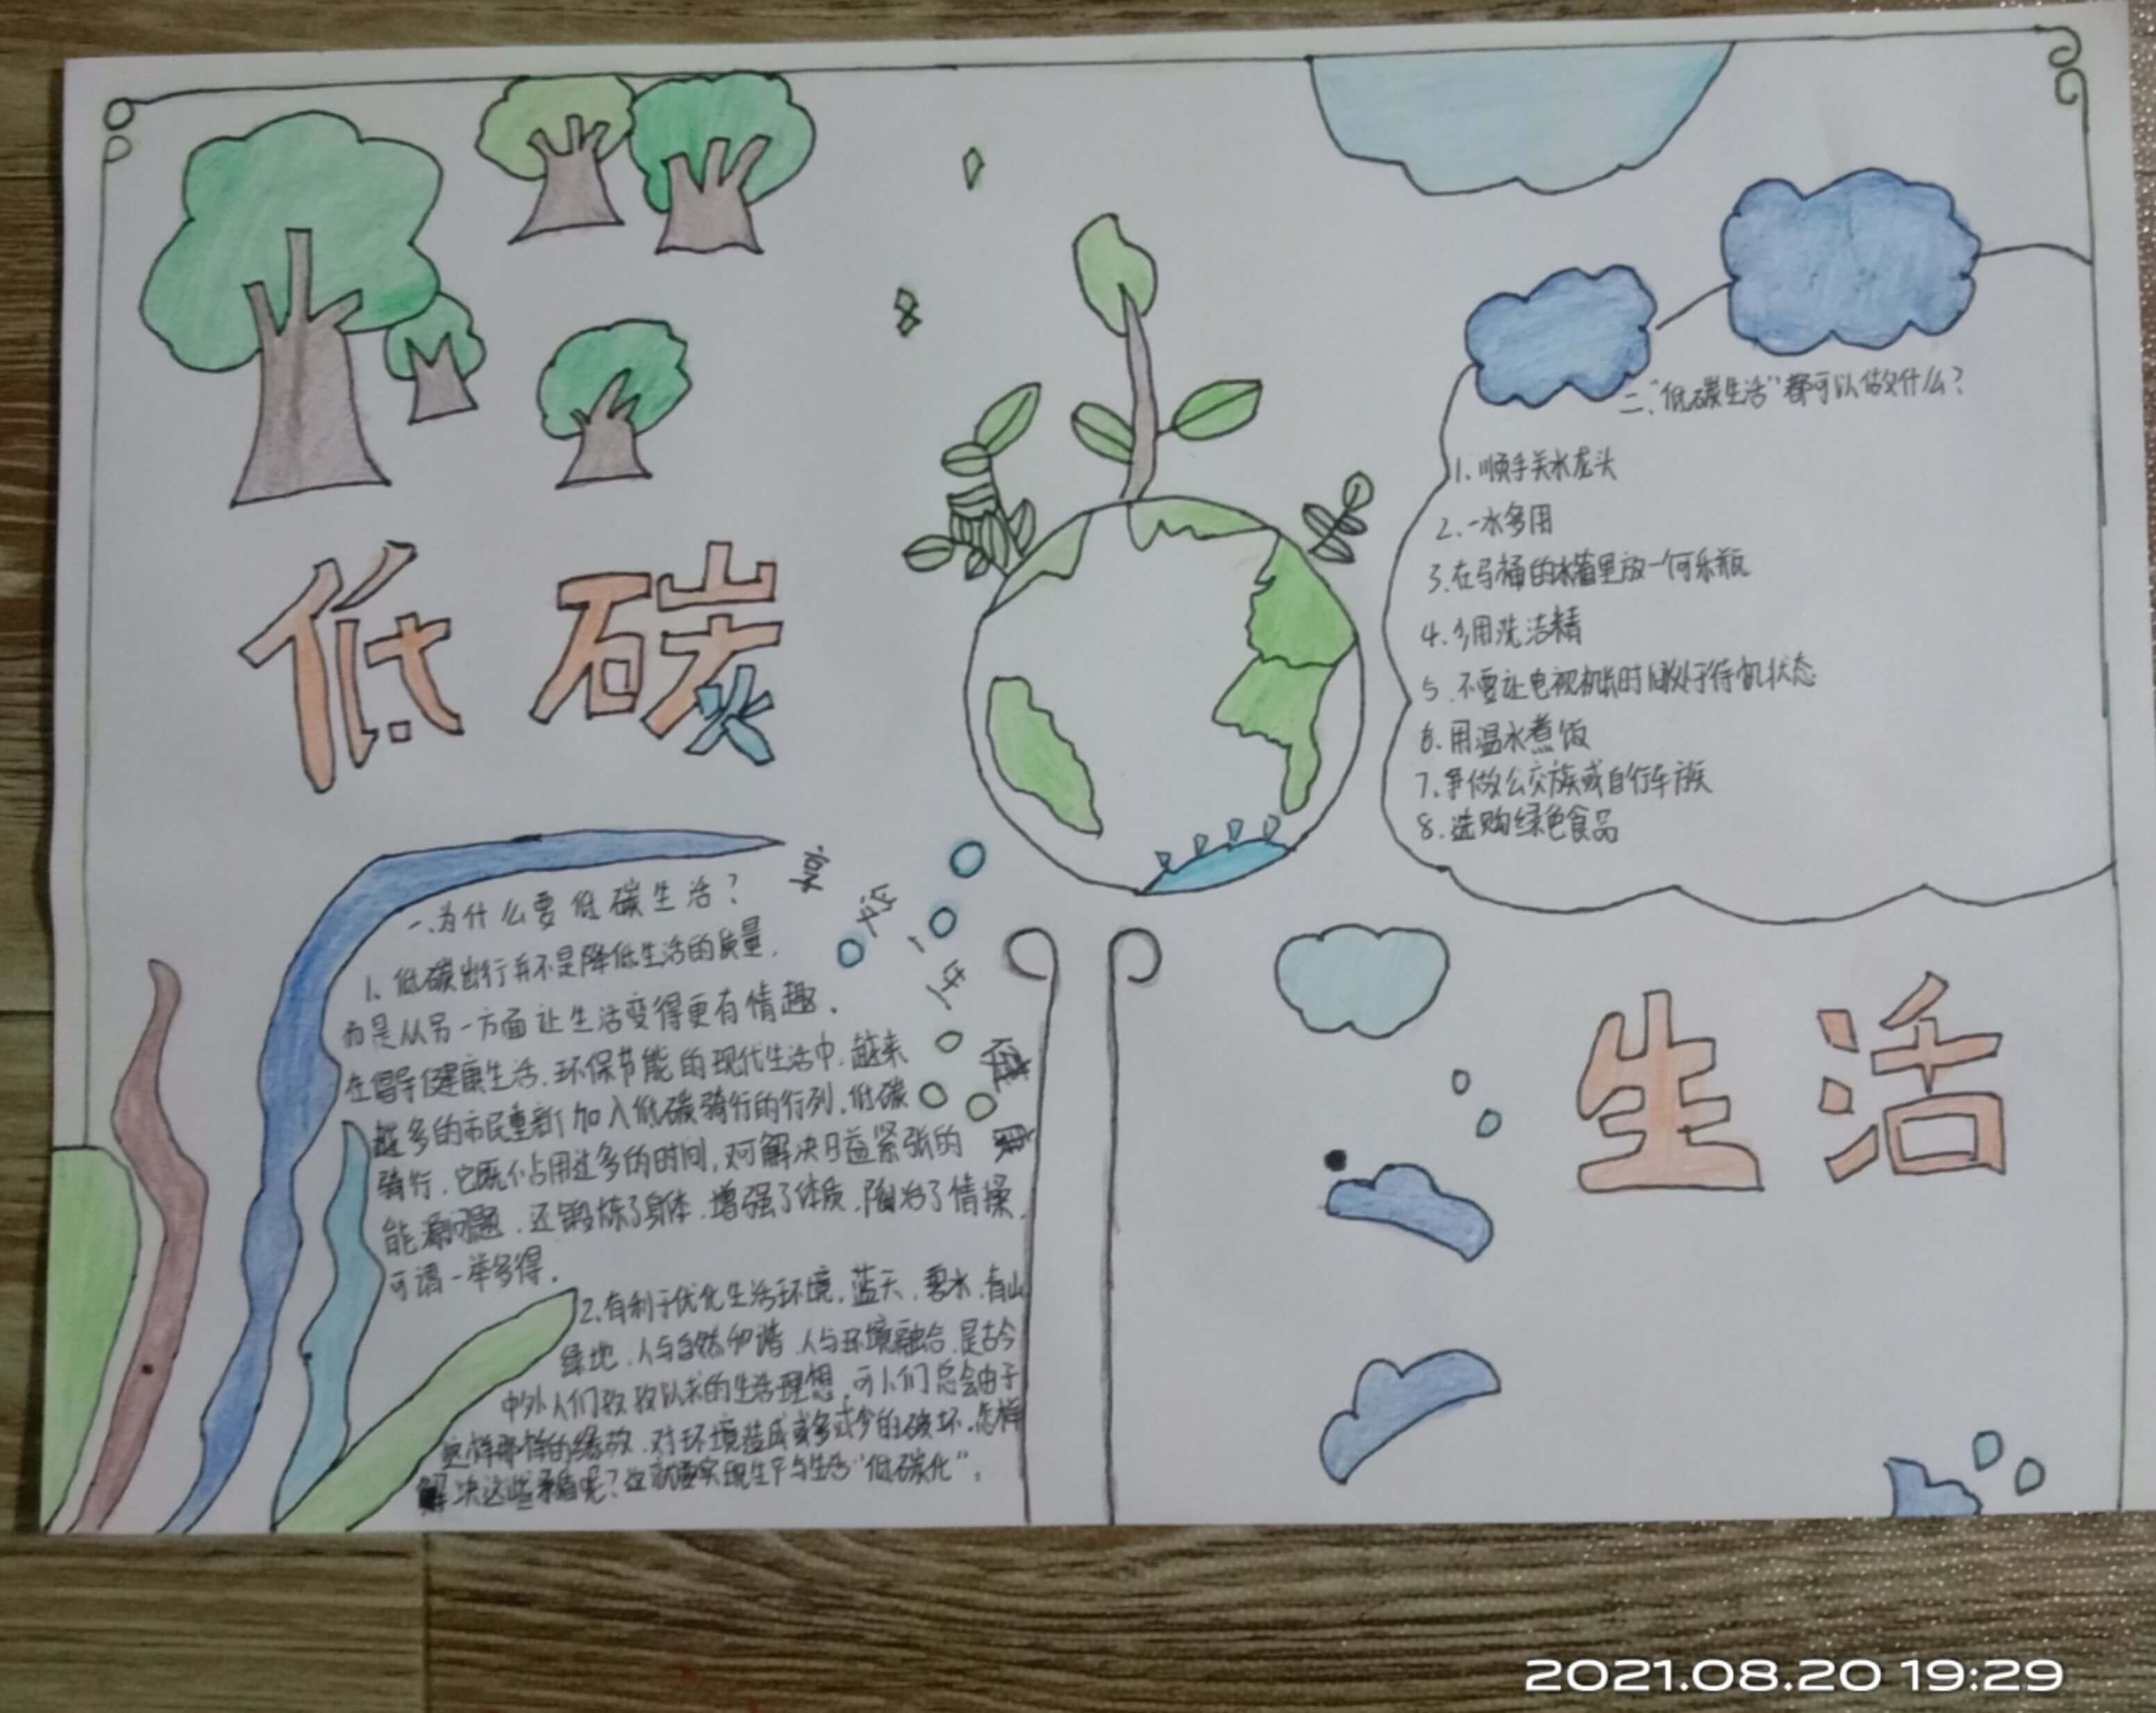 低碳
一.为什么要低碳生活？
1、低碳出行并不是降低生活的质量，
而是从另一方面让生活变得更有情趣.
在倡导健康生活.环保节能的现代生活中.越来
越多的市民重新加入低碳骑行的行列.低碳
骑行.它既不占用过多的时间,对解决日益紧张的
能源问题.还锻炼了身体.增强了体质.陶冶了情操.
可谓一举多得.
2.有利于优化生活环境.蓝天.碧水.青山
绿地.人与自然和谐.人与环境融合.是古今
中外人们孜孜以求的生活理想.可人们总会由于
这样那样的缘故.对环境造成或多或少的破坏.怎样
解决这些矛盾呢?这就要实现生产与生活“低碳化”.
健
康
二、“低碳生活”都可以做什么？
1、顺手关水龙头
2.一水多用
3.在马桶的水箱里放一可乐瓶
4.少用洗洁精
5.不要让电视机长时间处于待机状态
6.用温水煮饭
7.争做公交族或自行车族
8.选购绿色食品
生活
2021.08.20 19:29